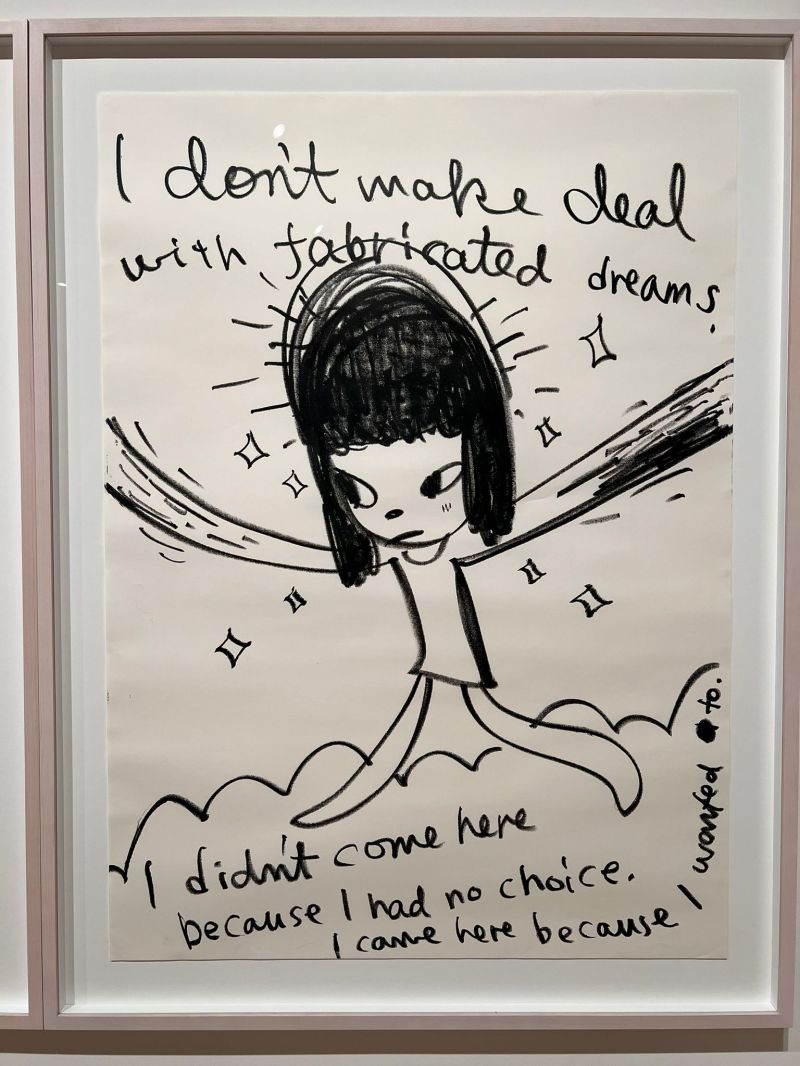 I don't make deal
with fabricated dreams.
I didn't come here
because I had no choice.
I came here because
I wanted to.